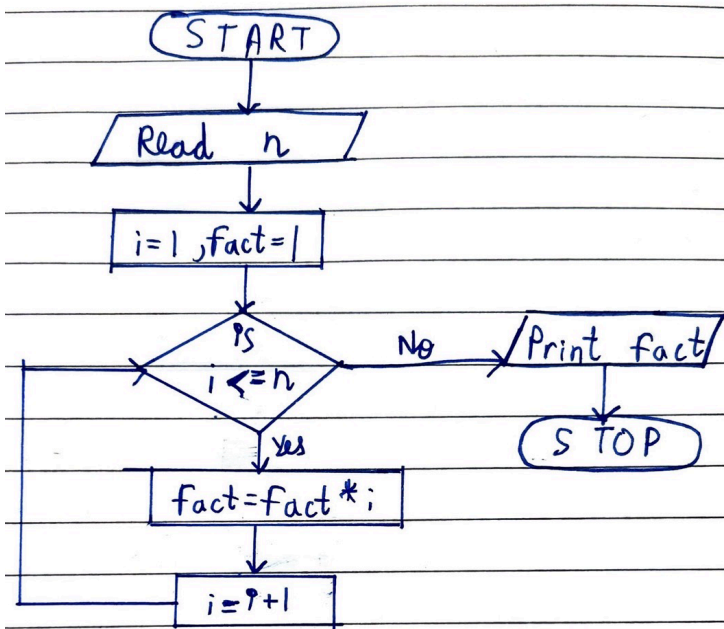 START
Read n
i=1, fact=1
is
i <= n
No
Print fact
STOP
Yes
fact=fact*i
i=i+1